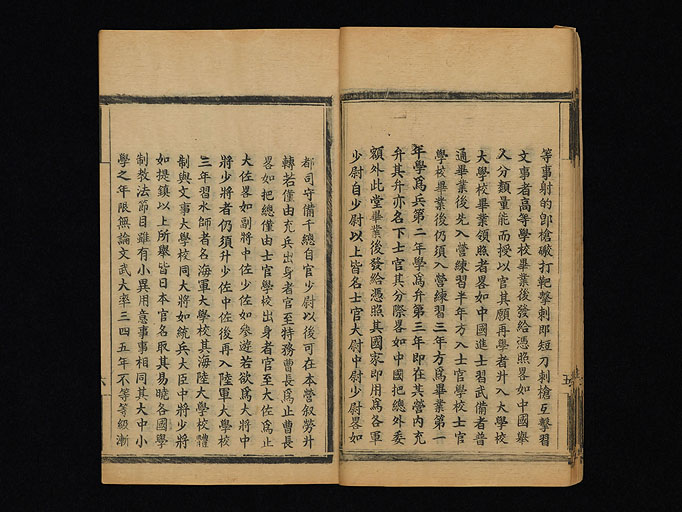 等事射的卽槍礮打靶擊刺卽短刀刺槍互擊習
文事者高等學校畢業後發給憑照畧如中國舉
人分類量能而授以官其願再學者升入大學校
大學校畢業領照者畧如中國進士習武備者普
通畢業後先入營練習半年方入士官學校士官
學校畢業後仍須入營練習三年方爲畢業第一
年學爲兵第二年學爲升第三年即在其營內充
弁其弁亦名下士官其分際畧如中國把總外委
額外此堂畢業後發給憑照其國家即用爲各軍
少尉自少尉以上皆名士官大尉中尉少尉畧如
五
都司守備千總自官少尉以後可在本營叙勞升
轉若僅由充兵出身者官至特務曹長爲止曹長
畧如把總僅由士官學校出身者官至大佐爲止
大佐畧如副將中佐少佐如參遊若欲爲大將中
將少將者仍須升少佐中佐後再入陸軍大學校
三年習水師者名海軍大學校其海陸大學校體
制與文事大學校同大將如統兵大臣中將少將
如提鎮以上所舉皆日本官名取其易曉各國學
制教法節目雖有小異用意事事相同其大中小
學之年限無論文武大率三四五年不等等級漸
六